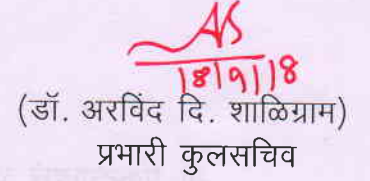 18/9/18
(डॉ. अरविंद दि. शाळिग्राम)
प्रभारी कुलसचिव